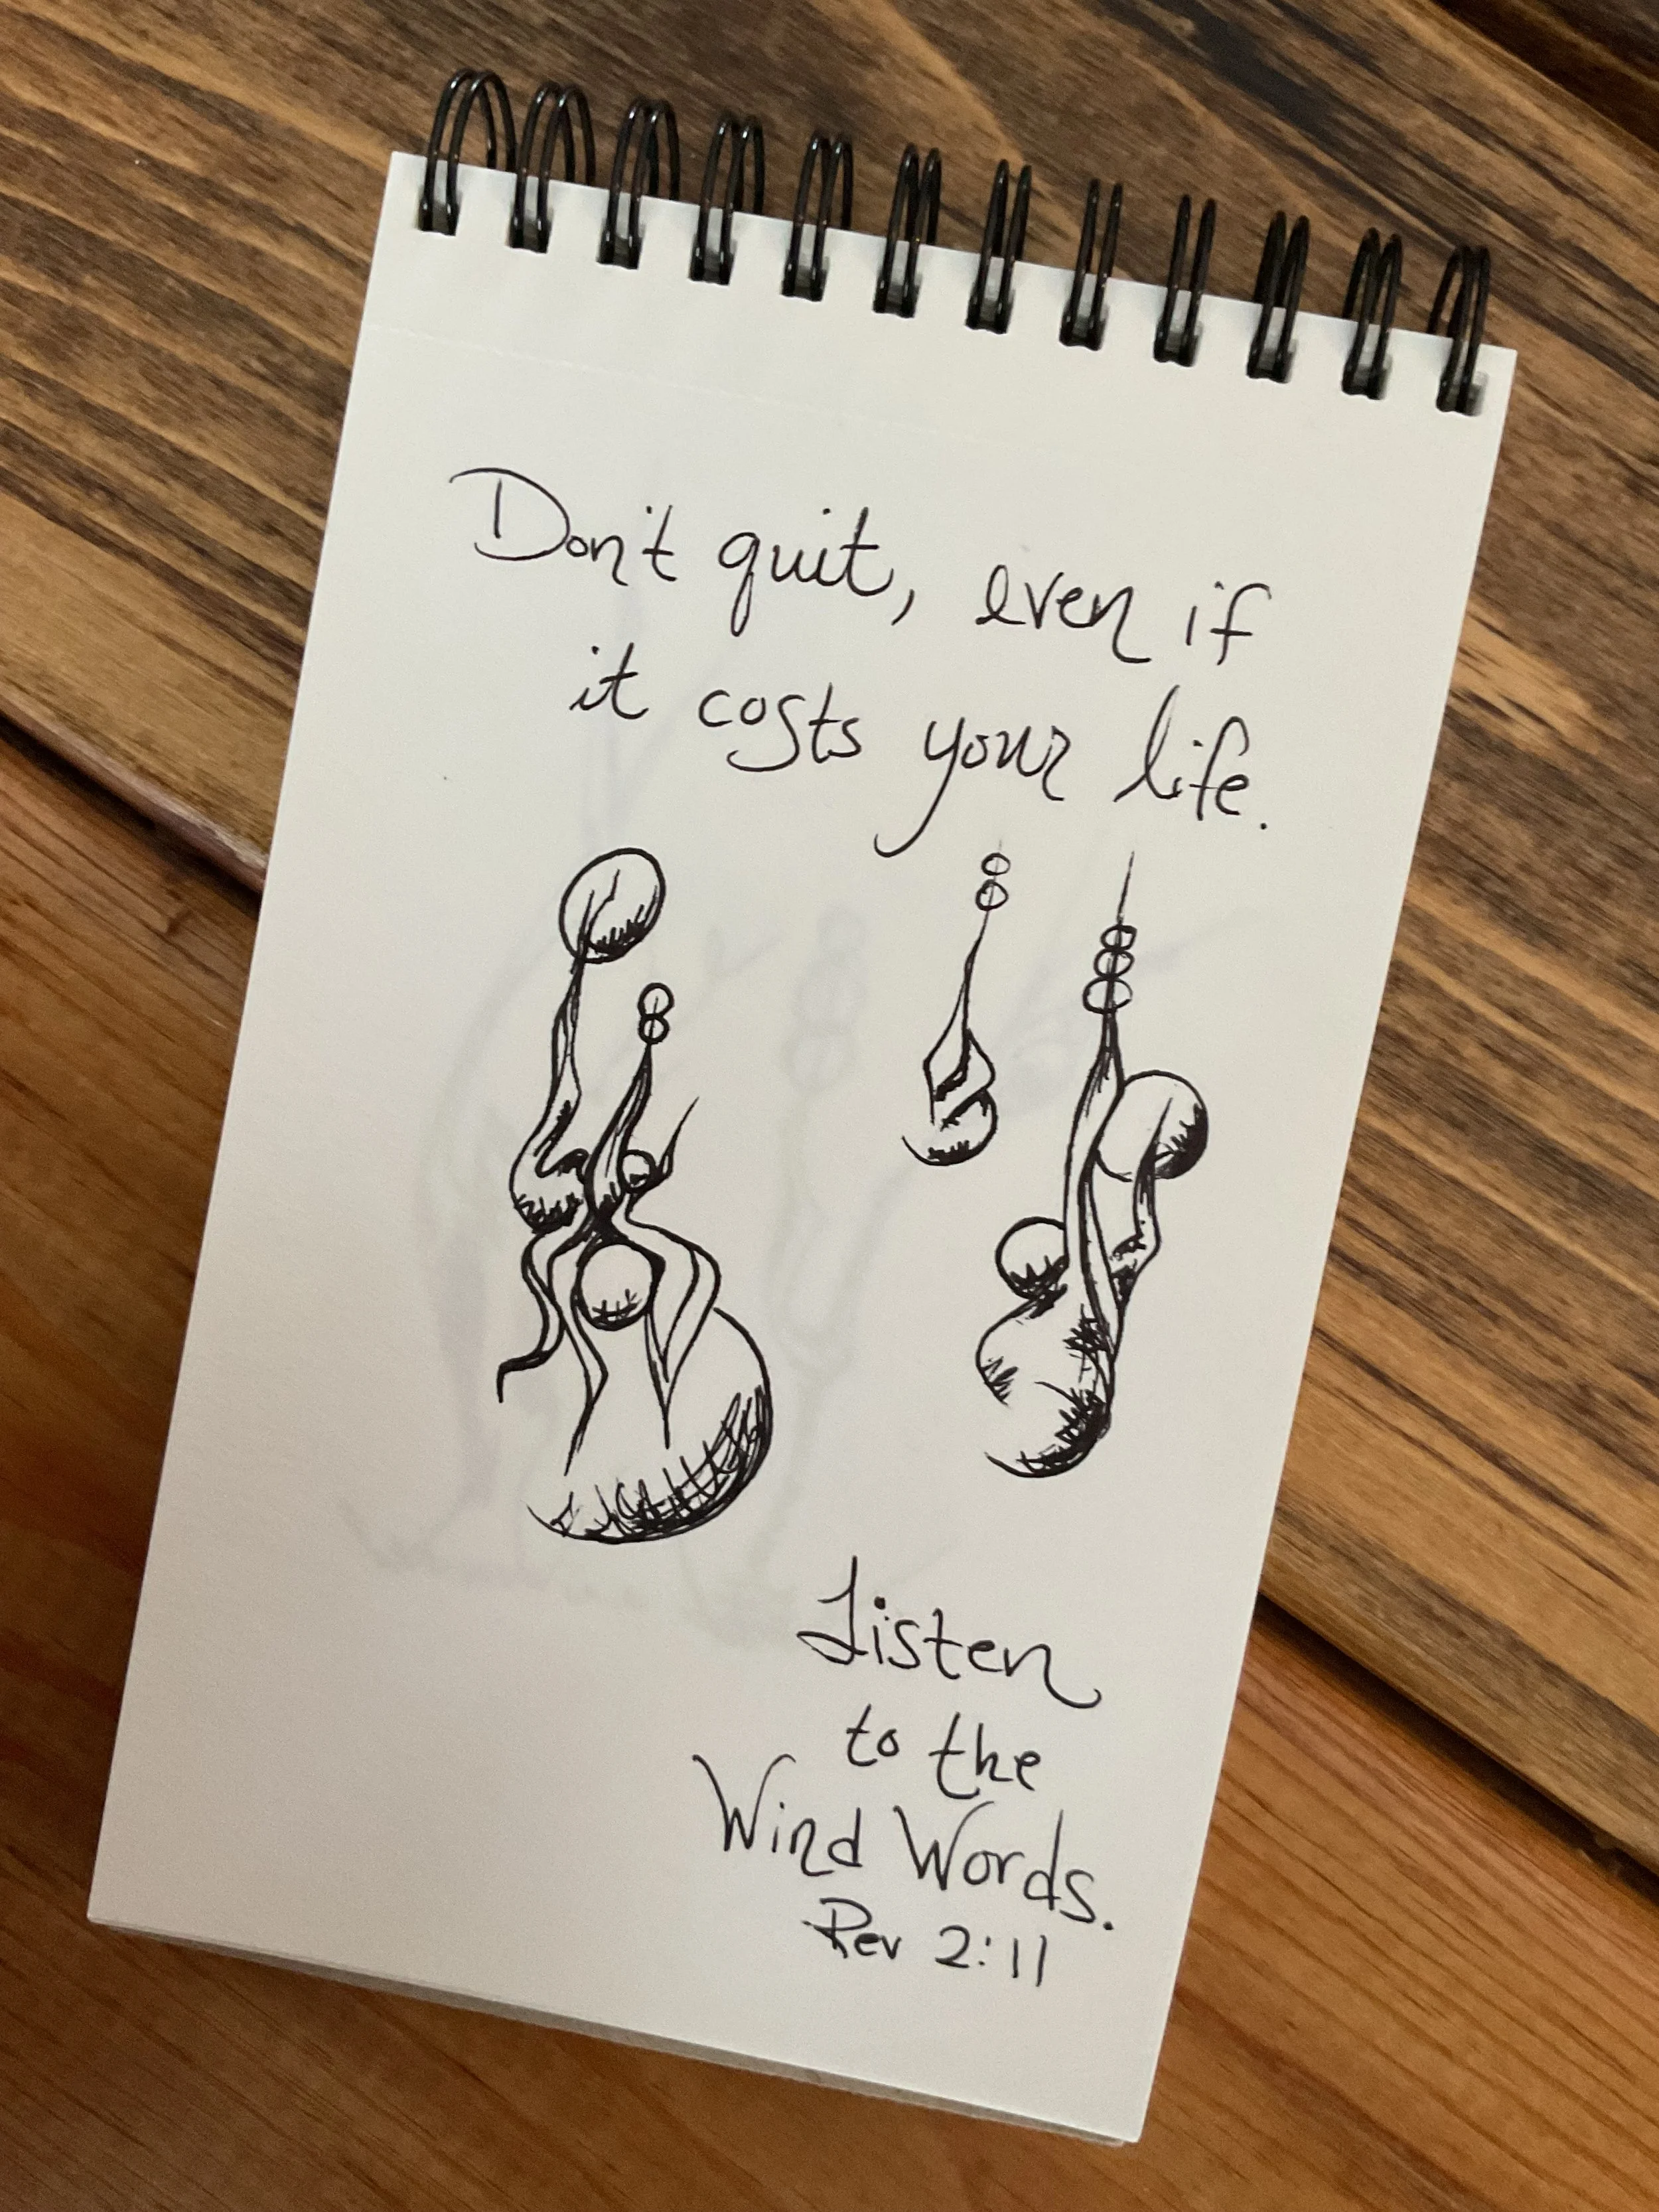 Don't quit, even if
it costs your life.
Listen
to the
Wind Words.
Rev 2:11